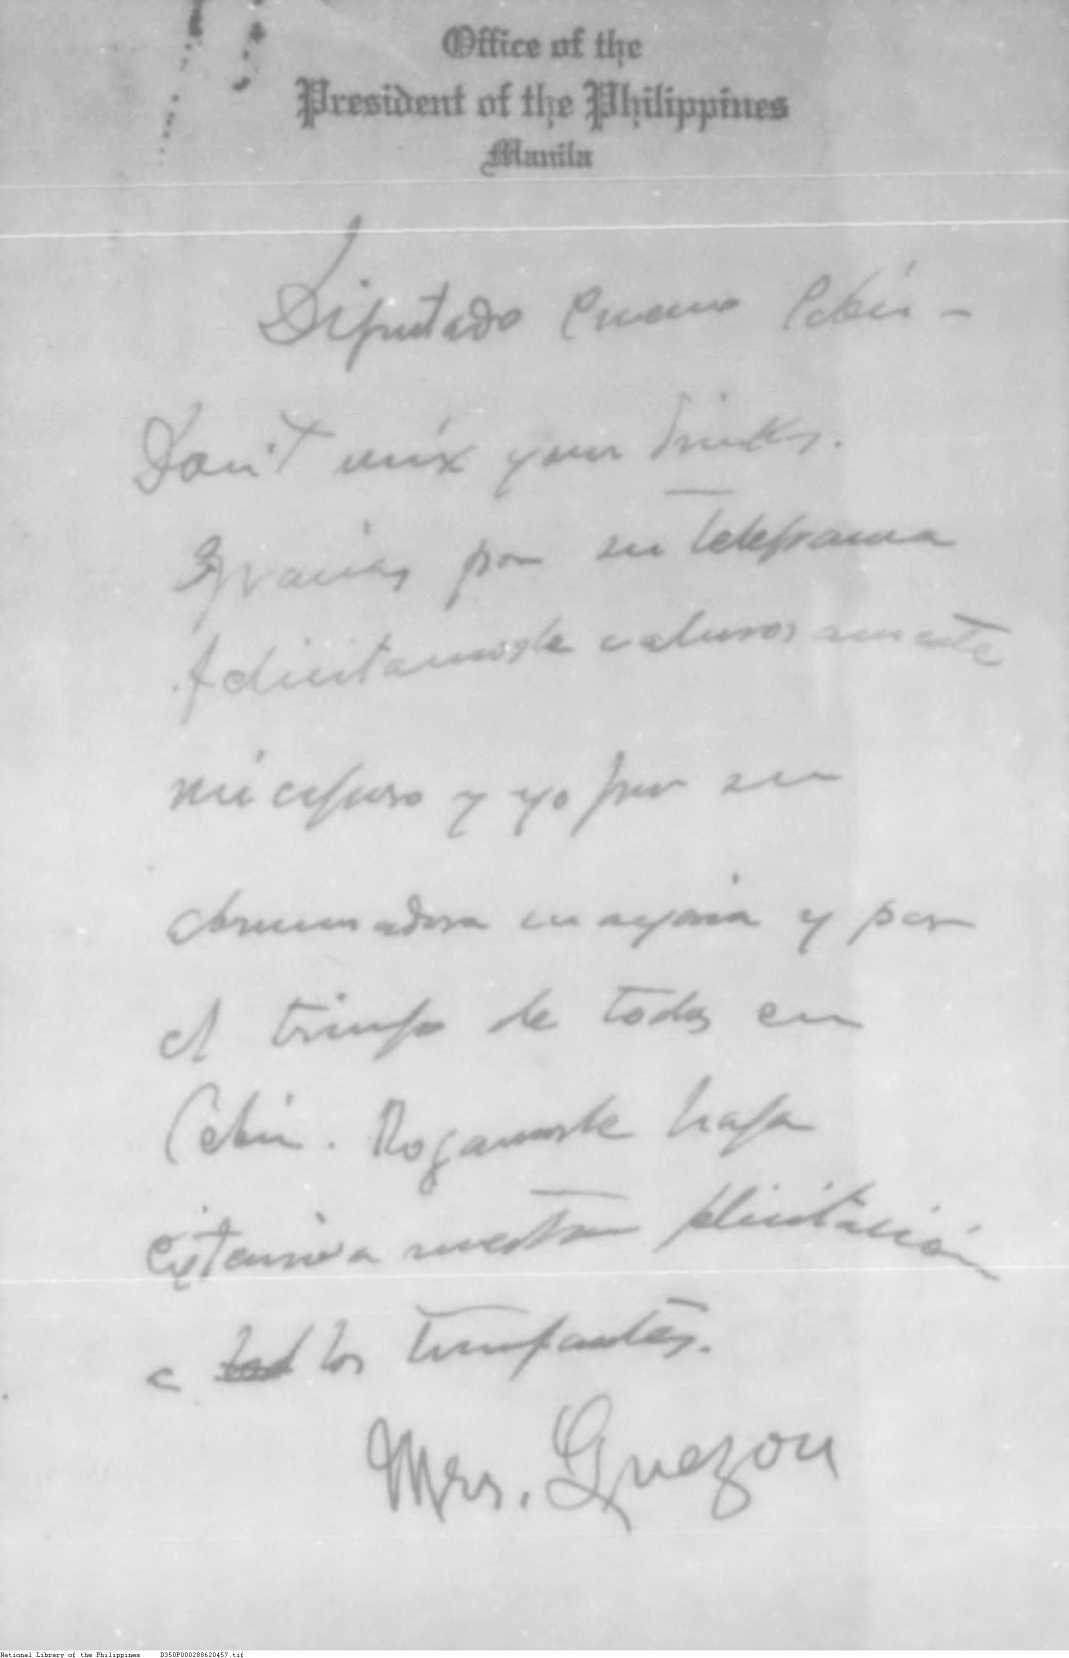 Office of the
President of the Philippines
Manila
Diputado Cuenco Cebú -
Don't mix your drinks.
Gracias por su telegrama
felicitamosle calurosamente
mi esposo y yo por su
abrumadora mayoria y por
el triunfo de todos en
Cebú. Rogamosle haga
extensiva nuestra felicitación
a los triunfantes.
Mrs. Quezon
National Library of the Philippines D350P000288620457.tif